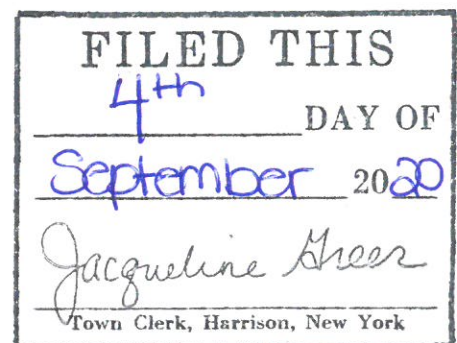 FILED THIS
4th
DAY OF
September 2020
Jacqueline Greer
Town Clerk, Harrison, New York